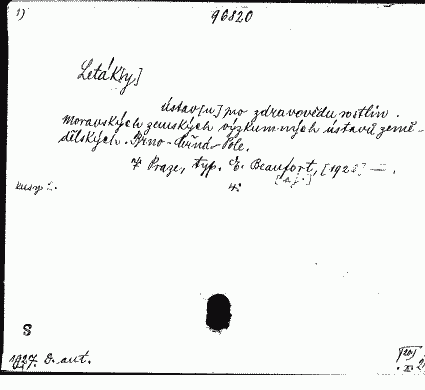 1) 96820
Leták[y]
Ústav[u] pro zdravovědu rostlin.
Moravských zemských výzkumných ústavů země-
dělských. Brno-Černá-Pole.
V Praze, typ. E. Beaufort, [192 ] —.
[a j.]
4°
S
1927. D. aut.